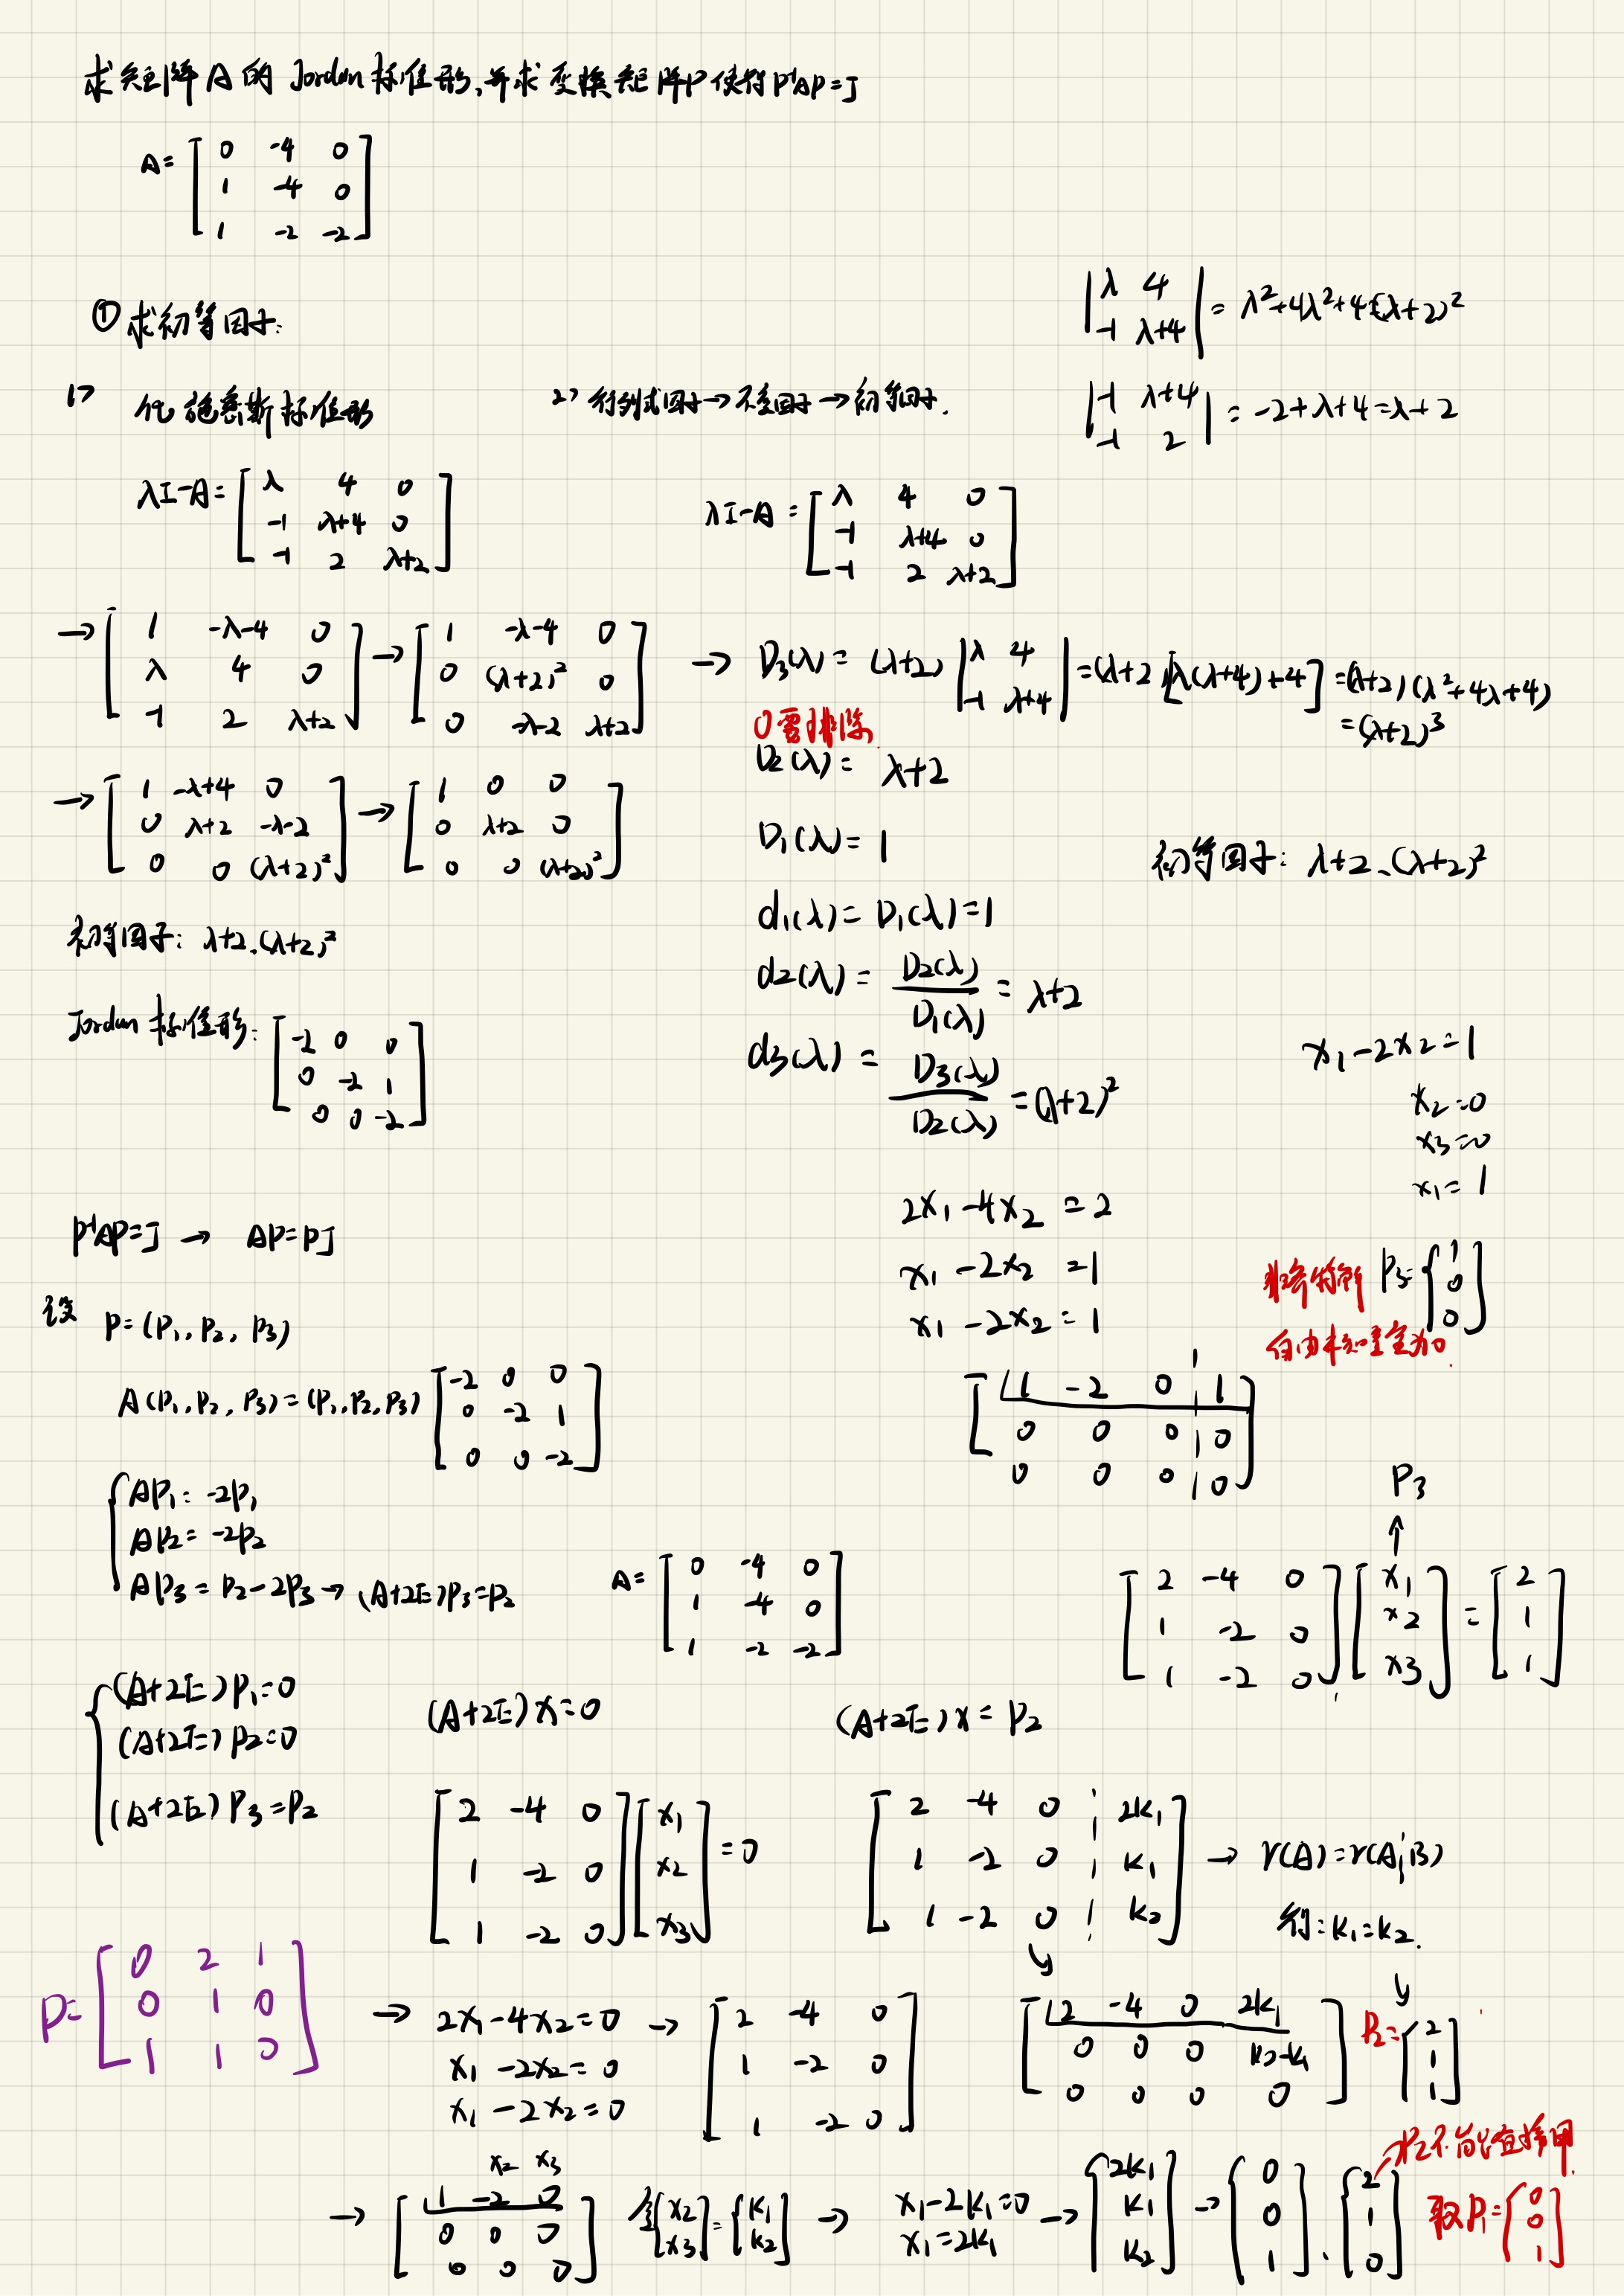 求矩阵A的 Jordan 标准形,并求变换矩阵P使得P⁻¹AP=J
A= [0 -4 0
1 -4 0
1 -2 -2]
|λ 4
-1 λ+4| = λ²+4λ²+4=(λ+2)²
① 求初等因子:
|-1 λ+4
-1 2| = -2+λ+4=λ+2
1> 化施密斯标准形
λI-A= [λ 4 0
-1 λ+4 0
-1 2 λ+2]
→ [1 -λ-4 0
λ 4 0
-1 2 λ+2] → [1 -λ-4 0
0 (λ+2)² 0
0 -λ-2 λ+2]
→ [1 -λ+4 0
0 λ+2 -λ-2
0 0 (λ+2)²] → [1 0 0
0 λ+2 0
0 0 (λ+2)²]
初等因子: λ+2、(λ+2)²
Jordan 标准形: [-2 0 0
0 -2 1
0 0 -2]
2> 行列式因子→不变因子→初等因子.
λI-A = [λ 4 0
-1 λ+4 0
-1 2 λ+2]
→ D₃(λ)= (λ+2) |λ 4
-1 λ+4| =(λ+2)[λ(λ+4)+4] =(λ+2)(λ²+4λ+4)
=(λ+2)³
0需排除.
D₂(λ)= λ+2
D₁(λ)= 1
初等因子: λ+2、(λ+2)²
d₁(λ)= D₁(λ)=1
d₂(λ)= D₂(λ)/D₁(λ) = λ+2
d₃(λ) = D₃(λ)/D₂(λ) =(λ+2)²
P⁻¹AP=J → AP=PJ
设 P=(P₁,P₂,P₃)
A(P₁,P₂,P₃)=(P₁,P₂,P₃) [-2 0 0
0 -2 1
0 0 -2]
AP₁= -2P₁
AP₂= -2P₂
AP₃ = P₂-2P₃ → (A+2E)P₃=P₂
A= [0 -4 0
1 -4 0
1 -2 -2]
(A+2E)P₁=0
(A+2E)P₂=0
(A+2E)P₃=P₂
(A+2E)x=0
[2 -4 0
1 -2 0
1 -2 0] [x₁
x₂
x₃] =0
→ 2x₁-4x₂=0
x₁-2x₂=0
x₁-2x₂=0
→ [2 -4 0
1 -2 0
1 -2 0]
x₂ x₃
→ [1 -2 0
0 0 0
0 0 0] 令[x₂
x₃]=[k₁
k₂] → x₁-2k₁=0
x₁=2k₁
→ [2k₁
k₁
k₂] → [0
0
1]、[2
1
0]
求2不能直接用.
取P₁=[0
0
1]
(A+2E)x= P₂
[2 -4 0 2k₁
1 -2 0 k₁
1 -2 0 k₂] → r(A)=r(A|B)
得:k₁=k₂.
[2 -4 0 2k₁
0 0 0 k₂-k₁
0 0 0 0]
P₂= [2
1
1]
P₃
↑
[2 -4 0
1 -2 0
1 -2 0] [x₁
x₂
x₃] = [2
1
1]
2x₁-4x₂=2
x₁-2x₂=1
x₁-2x₂=1
[1 -2 0 1
0 0 0 0
0 0 0 0]
x₁-2x₂=1
x₂=0
x₃=0
x₁=1
P₃=[1
0
0]
自由未知量全为0.
P= [0 2 1
0 1 0
1 1 0]